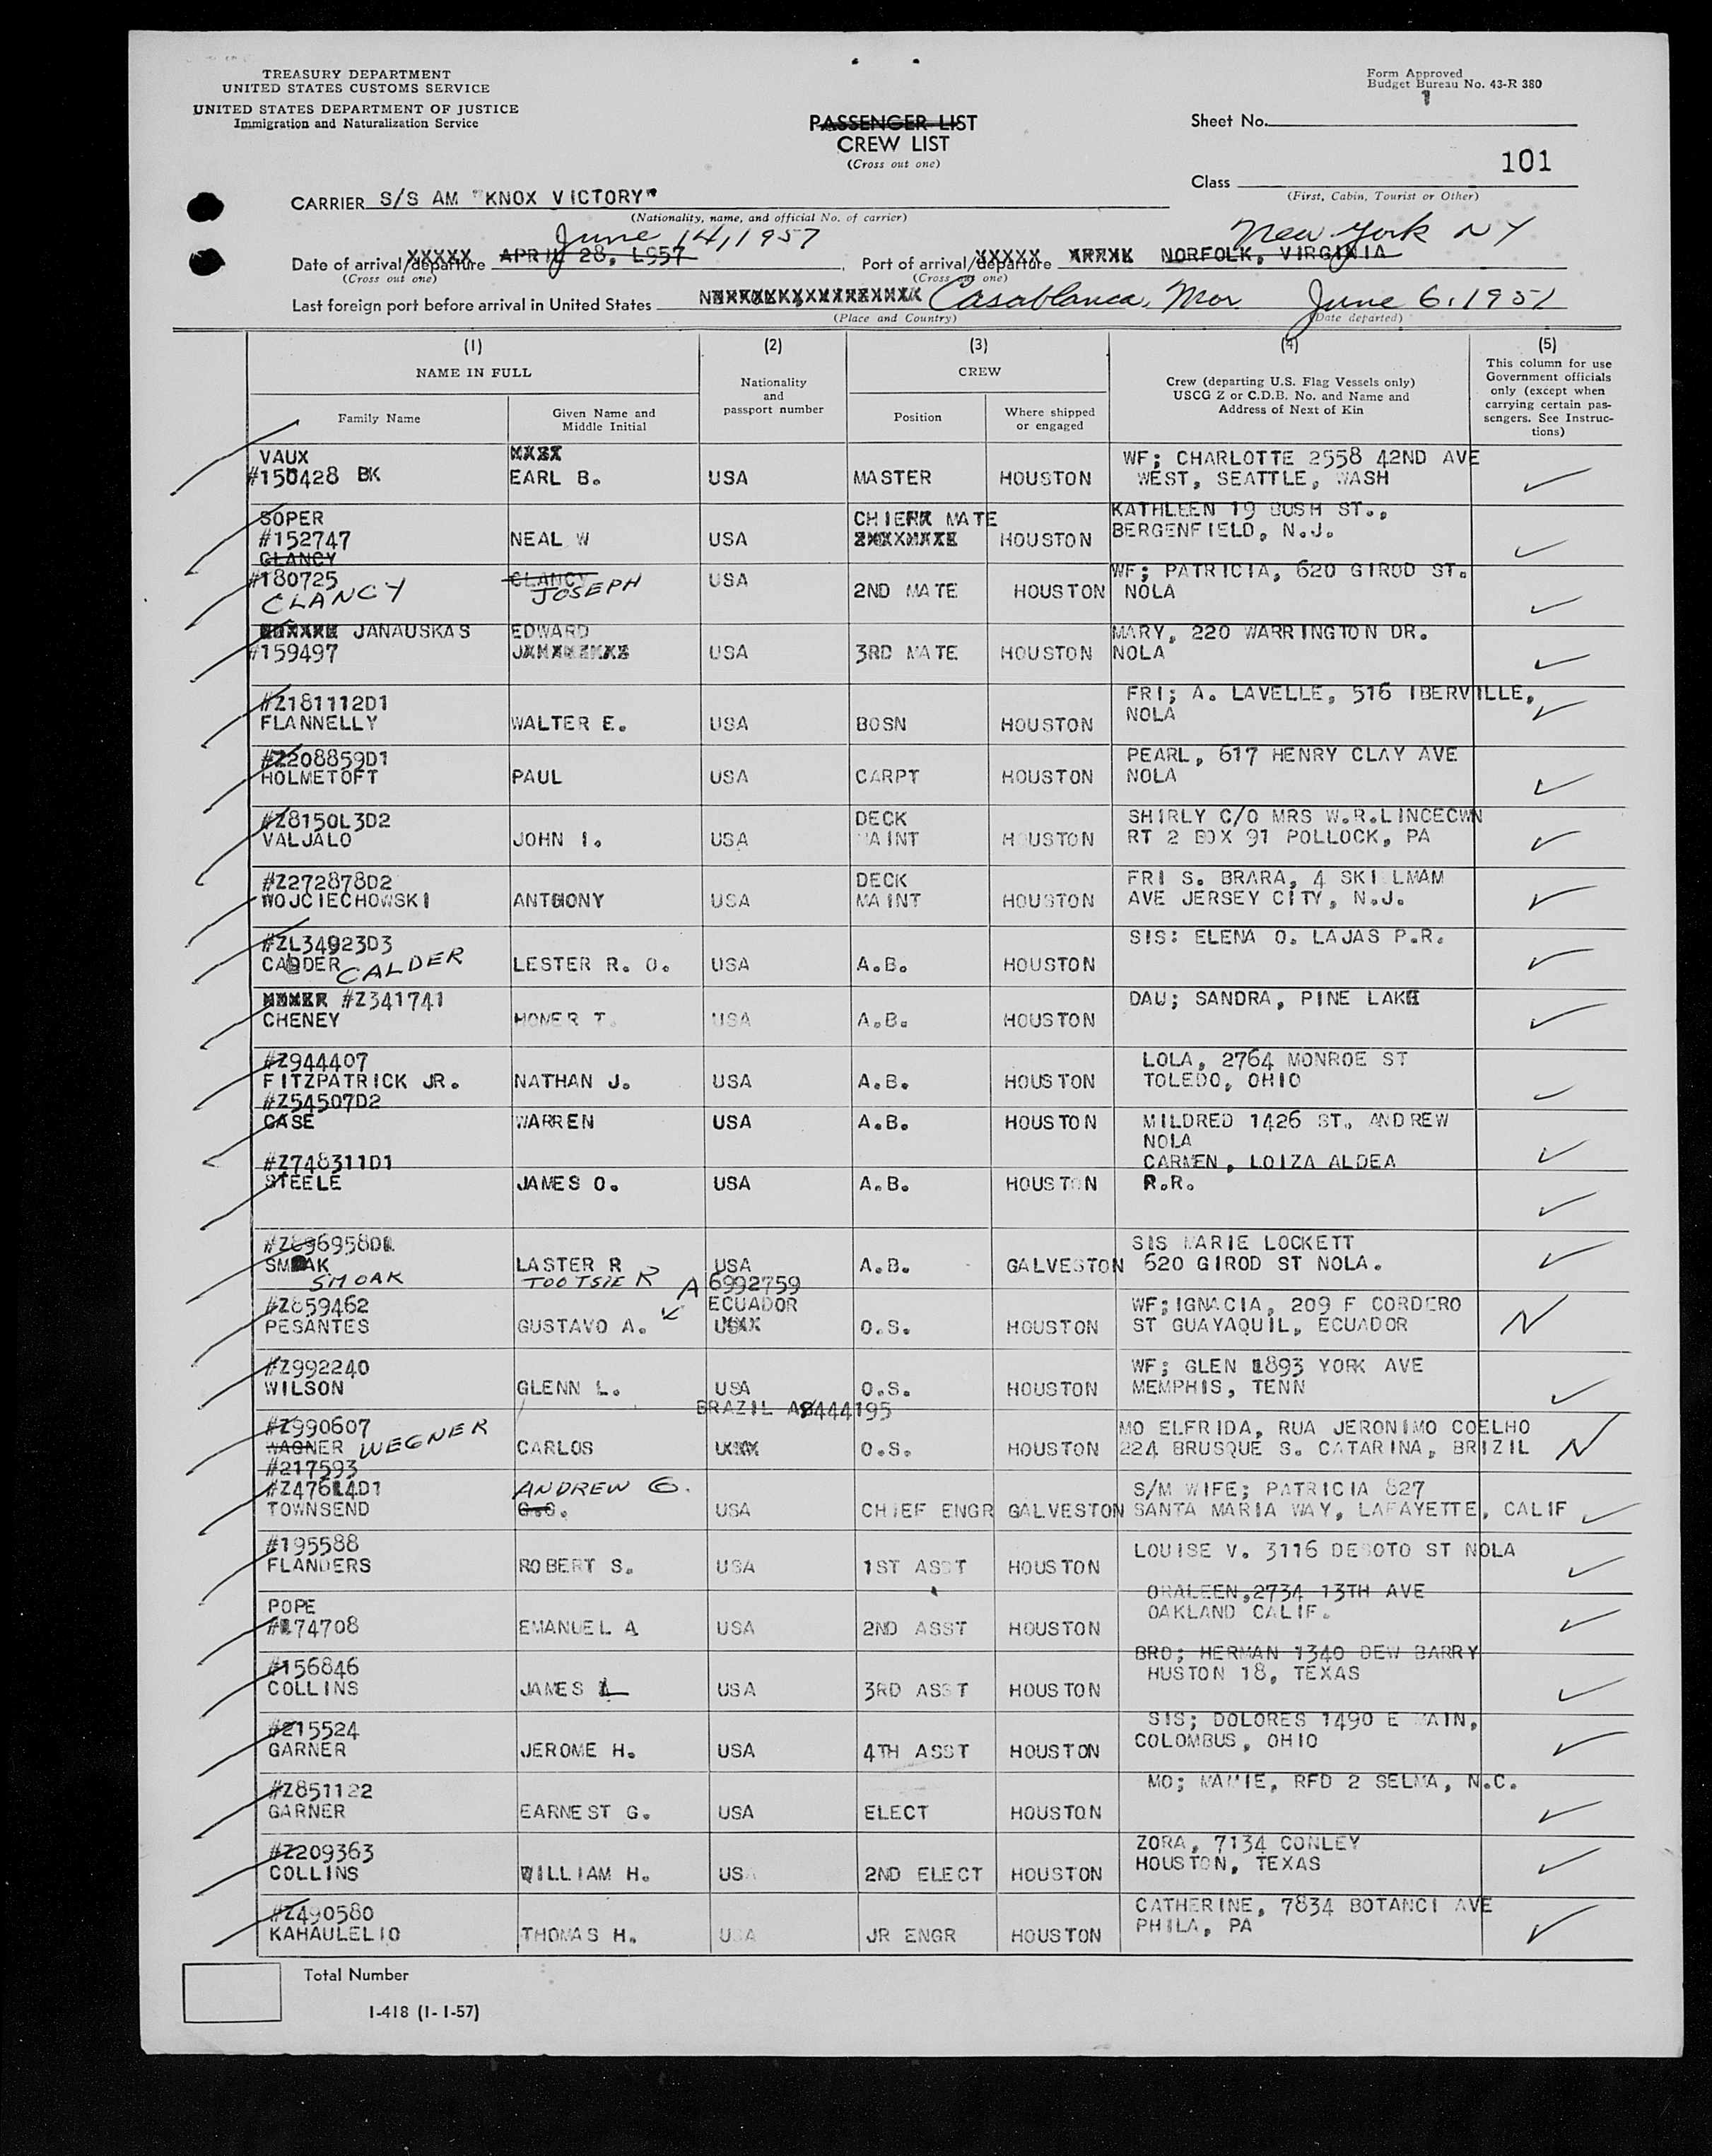 TREASURY DEPARTMENT
UNITED STATES CUSTOMS SERVICE
UNITED STATES DEPARTMENT OF JUSTICE
Immigration and Naturalization Service
Form Approved
Budget Bureau No. 43-R 380
PASSENGER LIST
CREW LIST
(Cross out one)
Sheet No. 1
101
Class
(First, Cabin, Tourist or Other)
CARRIER S/S AM "KNOX VICTORY"
(Nationality, name, and official No. of carrier)
June 14, 1957
New York NY
Date of arrival/departure APRIL 28, L957
Port of arrival/departure NORFOLK, VIRGINIA
(Cross out one)
(Cross out one)
Last foreign port before arrival in United States Casablanca, Mor June 6, 1957
(Place and Country)
(Date departed)
(1) (2) (3) (4) (5)
NAME IN FULL
Nationality and passport number
CREW
Crew (departing U.S. Flag Vessels only) USCG Z or C.D.B. No. and Name and Address of Next of Kin
This column for use Government officials only (except when carrying certain passengers. See Instructions)
Family Name
Given Name and Middle Initial
Position
Where shipped or engaged
VAUX WF; CHARLOTTE 2558 42ND AVE
#150428 BK EARL B. USA MASTER HOUSTON WEST, SEATTLE, WASH
SOPER CHIEF MATE KATHLEEN 19 BUSH ST.,
#152747 NEAL W USA HOUSTON BERGENFIELD, N.J.
CLANCY
#180725 CLANCY USA WF; PATRICIA, 620 GIROD ST.
CLANCY JOSEPH 2ND MATE HOUSTON NOLA
JANAUSKAS EDWARD MARY, 220 WARRINGTON DR.
#159497 USA 3RD MATE HOUSTON NOLA
#Z181112D1 FRI; A. LAVELLE, 516 IBERVILLE,
FLANNELLY WALTER E. USA BOSN HOUSTON NOLA
#Z208859D1 PEARL, 617 HENRY CLAY AVE
HOLMETOFT PAUL USA CARPT HOUSTON NOLA
#Z8150L3D2 DECK SHIRLY C/O MRS W.R.LINCECWN
VALJALO JOHN I. USA MAINT HOUSTON RT 2 BOX 91 POLLOCK, PA
#Z272878D2 DECK FRI S. BRARA, 4 SKILLMAM
WOJCIECHOWSKI ANTHONY USA MAINT HOUSTON AVE JERSEY CITY, N.J.
#ZL34923D3 SIS: ELENA O. LAJAS P.R.
CALDER LESTER R. O. USA A.B. HOUSTON
#Z341741 DAU; SANDRA, PINE LAKE
CHENEY HOMER T. USA A.B. HOUSTON
#Z944407 LOLA, 2764 MONROE ST
FITZPATRICK JR. NATHAN J. USA A.B. HOUSTON TOLEDO, OHIO
#Z54507D2
CASE WARREN USA A.B. HOUSTON MILDRED 1426 ST. ANDREW
NOLA
#Z748311D1 CARMEN, LOIZA ALDEA
STEELE JAMES O. USA A.B. HOUSTON P.R.
SIS MARIE LOCKETT
SMOAK LASTER R USA A.B. GALVESTON 620 GIROD ST NOLA.
SMOAK TOOTSIE R A 6992759
#Z859462 ECUADOR WF; IGNACIA, 209 F CORDERO
PESANTES GUSTAVO A. O.S. HOUSTON ST GUAYAQUIL, ECUADOR N
#Z992240 WF; GLEN 1893 YORK AVE
WILSON GLENN L. USA O.S. HOUSTON MEMPHIS, TENN
BRAZIL A8444195
#Z990607 MO ELFRIDA, RUA JERONIMO COELHO
WAGNER WEGNER CARLOS O.S. HOUSTON 224 BRUSQUE S. CATARINA, BRIZIL N
#217593
#Z476L4D1 ANDREW G. S/M WIFE; PATRICIA 827
TOWNSEND USA CHIEF ENGR GALVESTON SANTA MARIA WAY, LAFAYETTE, CALIF
#195588 LOUISE V. 3116 DESOTO ST NOLA
FLANDERS ROBERT S. USA 1ST ASST HOUSTON
POPE ORALEEN, 2734 13TH AVE
#174708 EMANUEL A USA 2ND ASST HOUSTON OAKLAND CALIF.
#156846 BRO; HERMAN 1340 DEW BARRY
COLLINS JAMES L USA 3RD ASST HOUSTON HUSTON 18, TEXAS
#215524 SIS; DOLORES 1490 E MAIN,
GARNER JEROME H. USA 4TH ASST HOUSTON COLOMBUS, OHIO
#Z851122 MO; MAMIE, RFD 2 SELMA, N.C.
GARNER EARNEST G. USA ELECT HOUSTON
#Z209363 ZORA, 7134 CONLEY
COLLINS WILLIAM H. USA 2ND ELECT HOUSTON HOUSTON, TEXAS
#Z490580 CATHERINE, 7834 BOTANCI AVE
KAHAULELIO THOMAS H. USA JR ENGR HOUSTON PHILA, PA
Total Number
I-418 (1-1-57)